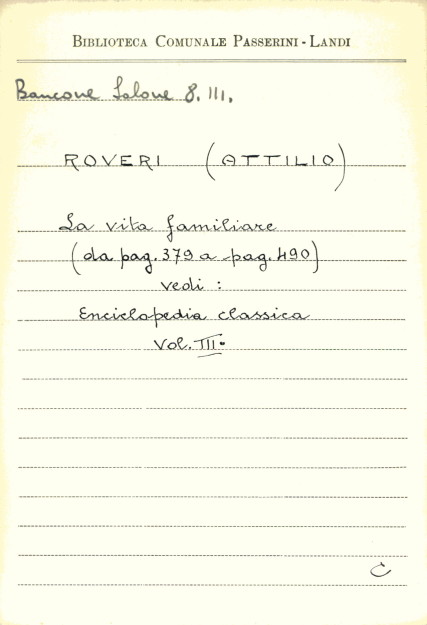 BIBLIOTECA COMUNALE PASSERINI - LANDI
Bancone Salone 8. III.
ROVERI (ATTILIO)
La vita familiare
(da pag. 379 a pag. 490)
vedi :
Enciclopedia classica
Vol. III.
C